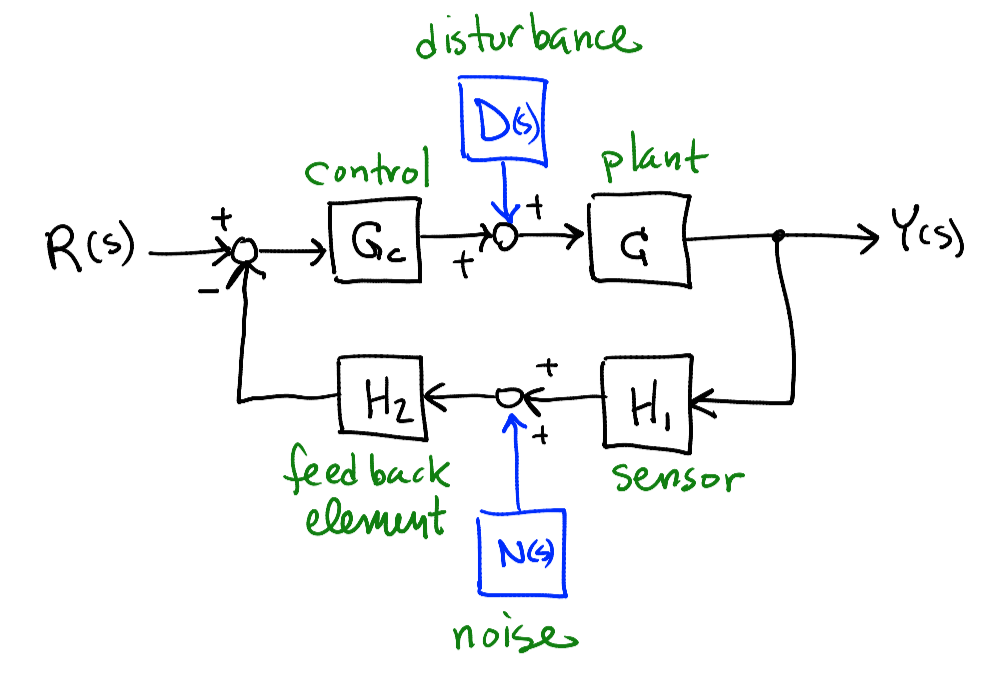 disturbance
D(s)
control
plant
R(s)
+
−
Gc
+
+
G
Y(s)
H2
+
+
H1
feedback
element
sensor
N(s)
noise